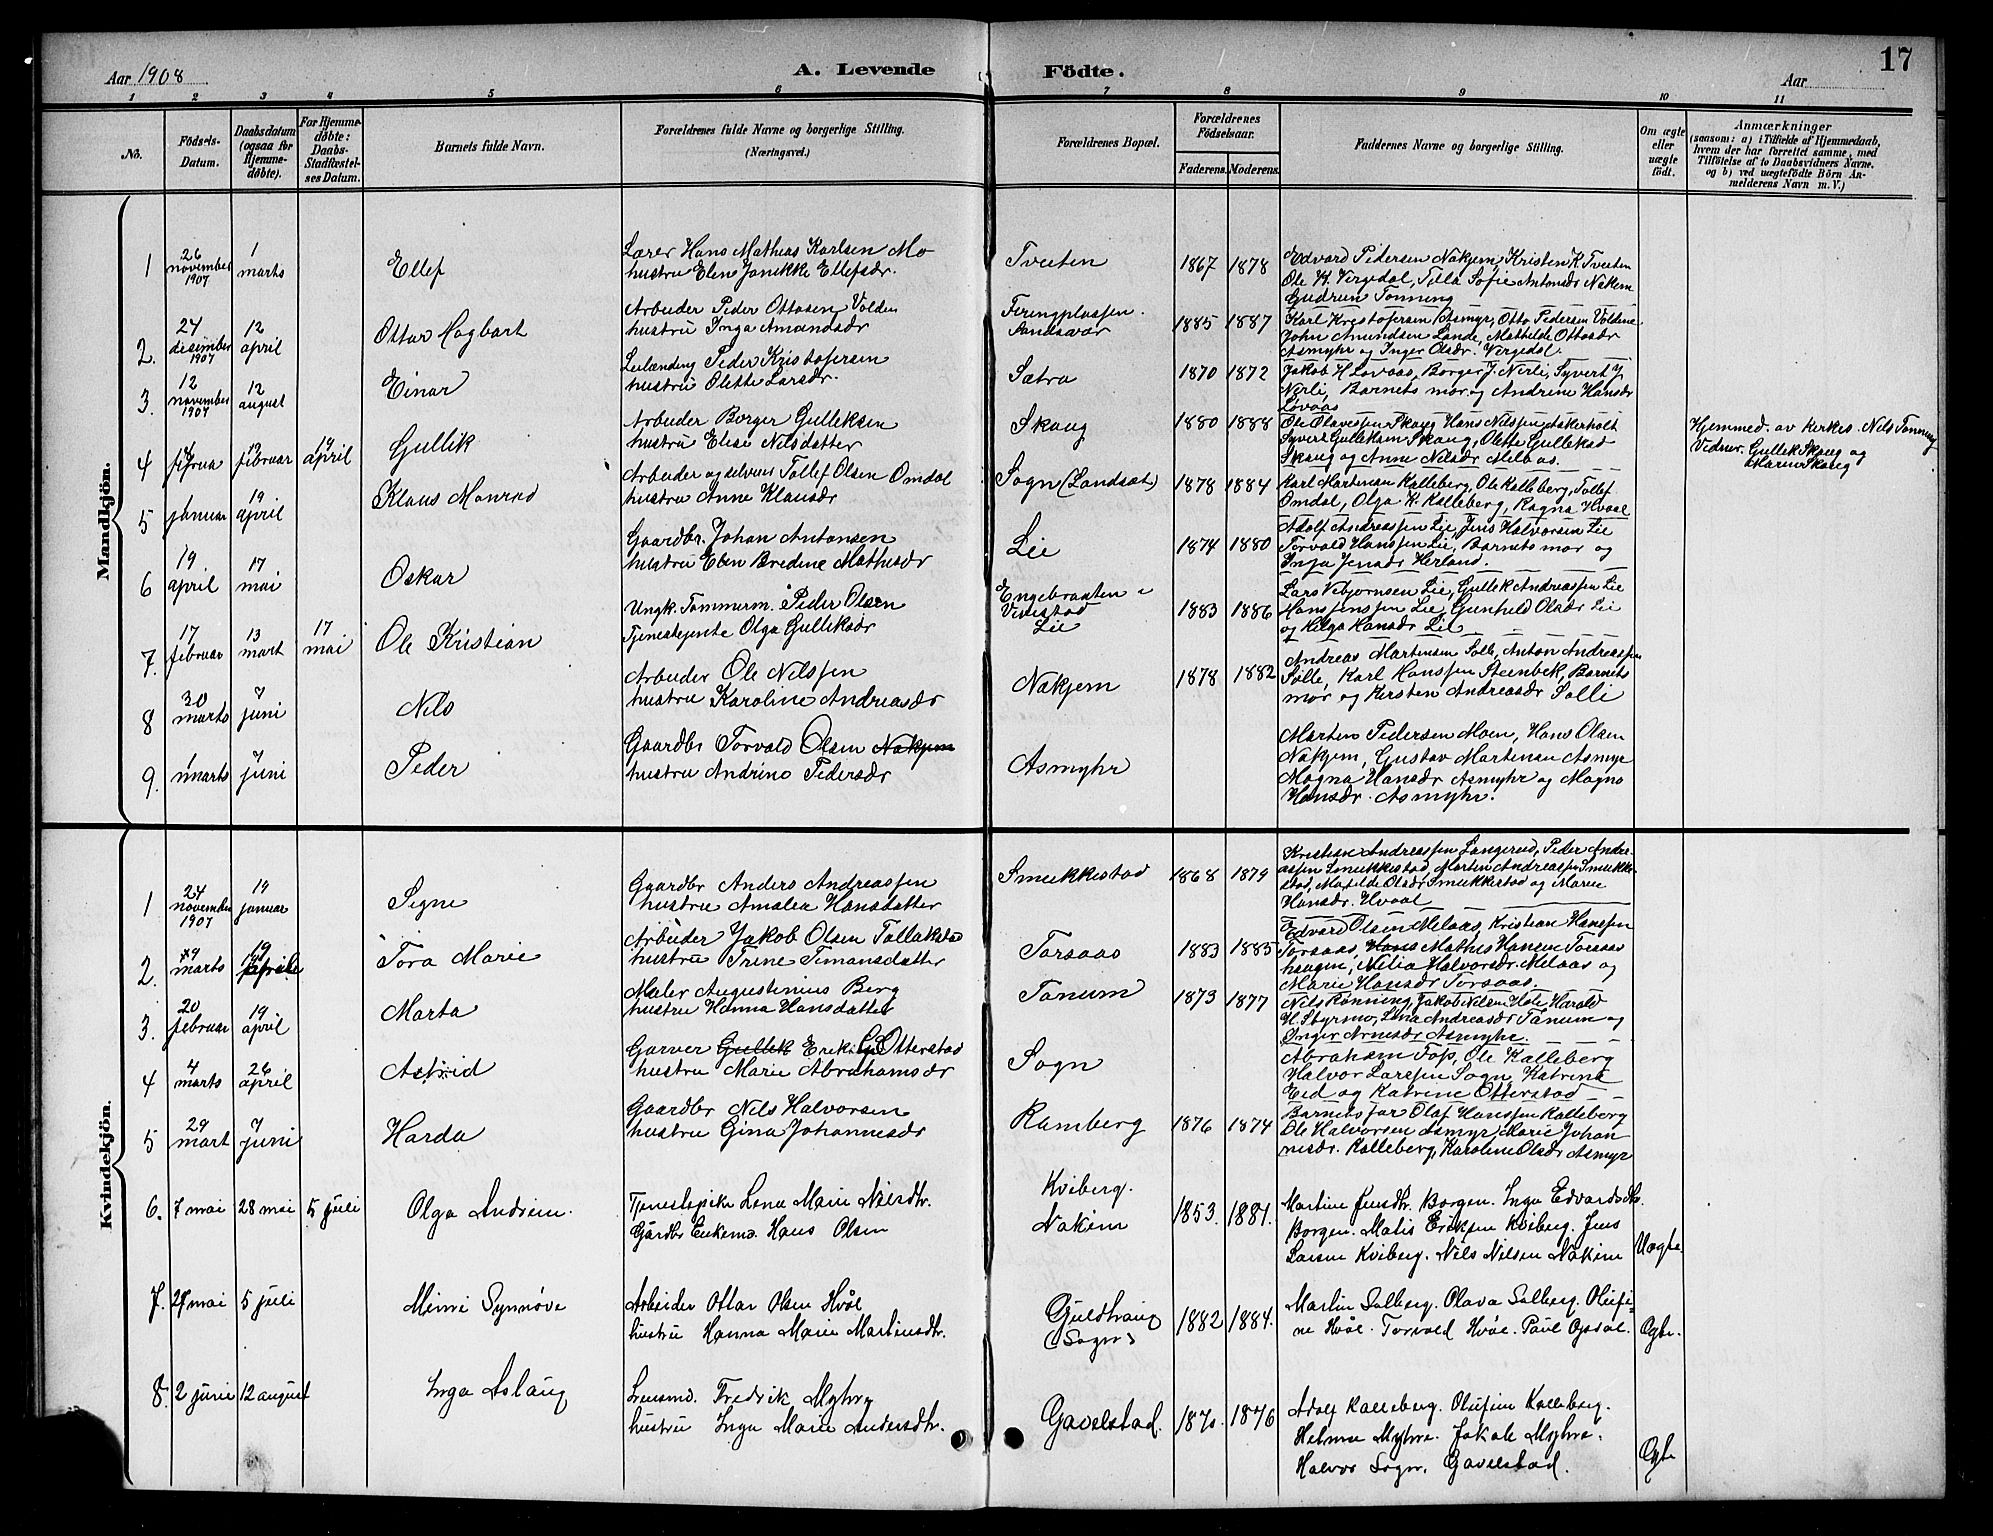 17
Aar 1908
A. Levende Födte.
Aar
1 2 3 4 5 6 7 8 9 10 11
No.
Födsels-Datum.
Daabsdatum (ogsaa for Hjemme-döbte).
For Hjemme-döbte: Daabs-Stadfæstel-ses Datum.
Barnets fulde Navn.
Forældrenes fulde Navne og borgerlige Stilling.
(Næringsvei.)
Forældrenes Bopæl.
Forældrenes Födselsaar.
Faderens. Moderens.
Faddernes Navne og borgerlige Stilling.
Om ægte eller uægte födt.
Anmærkninger
(saasom: a) i Tilfælde af Hjemmedaab,
hvem der har forrettet samme, med
Tilföielse af to Daabsvidners Navne.
og b) ved uægtefödte Börn An-
melderens Navn m. V.)
Mandkjön.
1
26 november 1907
1 marts
Ellef
Lærer Hans Mathias Karlsen Mo
hustru Eline Janikke Ellefsdr.
Tveten
1867 1878
Edvard Pedersen Nakjem, Kristen K. Tveten
Ole K. Vergedal, Tilla Sofie Antonsdr Nakjem
Gudrun Tonning
2.
24 desember 1907
12 april
Ottar Hagbart
Arbeider Peder Ottosen Volden
hustru Inga Amundsdr
Sandsvær
1885 1887
Karl Kristofersen Asmyr, Otto Pedersen Voldene
John Amundsen Lande, Mathilde Ottosdr
Asmyhr og Inger Olsdr. Vergedal.
3.
12 november 1907
12 august
Einar
Leilænding Peder Kristofersen
hustru Olette Larsdr.
Sætra
1870 1872
Jakob H Lovaas, Borger J. Nerli, Syvert J
Nerli, Barnets mor og Andrine Hansdr
Løvaas
4
februar
februar
april
Gullik
Arbeider Borger Gulleksen
hustru Elise Nilsdatter
Skaug
1880 1888
Ole Olavessen Skaug Hans Nilssen Aakerholt
Syvert Gulleksen Skaug, Olette Gulleksd
Skaug og Anne Nilsdr Melaas.
Hjemmed. av kirkes. Nils Tonning
Vidner. Gullek Skaug og
Maren Skaug
5
januar
19 april
Klaus Monrad
Arbeider og selveier Tollef Olsen Omdal
hustru Anne Klausdr
Sogn (Landsat)
1878 1884
Karl Martman Kalleberg, Ole Kalleberg, Tollef
Omdal, Olga K. Kalleberg, Ragna Hvaal
6
19 april
17 mai
Oskar
Gaardbr. Johan Antonsen
hustru Elen Bredine Mathisdr
Lie
1874 1880
Adolf Andreassen Lie, Jens Halvorsen Lie
Torvald Hanssen Lie, Barnets mor og
Inga Jensdr Herland.
7.
17 februar
13 mart
17 mai
Ole Kristian
Ungk. Tømmerm. Peder Olsen
Tjenestejente Olga Gulliksdr
Engebraaten i
Vivestad
Lie
1883 1886
Lars Vebjørnsen Lie, Gullek Andreassen Lie
Hans Jenssen Lie, Gunhild Olsdr Lie
og Helga Hansdr Lie
8
30 marts
7 juni
Nils
Arbeider Ole Nilssen
hustru Karoline Andreasdr
Nakjem
1878 1882
Andreas Martinsen Solle, Anton Andreassen
Solle, Karl Hanssen Steenbek, Barnets
mor og Kirsten Andreasdr Solli
9.
1 marts
7 juni
Peder
Gaardbr Torvald Olsen Nakjem
hustru Andrine Pedersdr
Asmyhr
Martin Pedersen Moen, Hans Olsen
Nakjem, Gustav Martinsen Asmyr
Magna Hansdr Asmyhr og Magna
Hansdr. Asmyhr.
Kvindekjön.
1
24 november 1907
19 januar
Signe
Gaardbr Anders Andreassen
hustru Amalia Hansdatter
Smukkestad
1868 1879
Kristian Andreassen Langerud, Peder Andre-
assen Smukkestad, Morten Andreassen Smukke-
stad, Matilde Olsdr Smukkestad og Marie
Hansdr. Hvaal
2.
marts
19 april
Tora Marie
Arbeider Jakob Olsen Tollakstad
hustru Trine Timansdatter
Torsaas
1883 1885
Edvard Olsen Melaas, Kristian Hanssen
Torsaas, Hans Mathis Hansen Torsaas
haugen, Nilia Halvorsdr. Melaas og
Marie Hansdr Torsaas.
3.
20 februar
19 april
Marta
Maler Augustinius Berg
hustru Hanna Hansdatter
Tanum
1873 1877
Nils Rønning, Jakob Nilsen Hole, Harald
H. Styrmo, Lina Andreasdr Tanum og
Inger Arnesdr Asmyhr.
4
4 marts
26 april
Astrid
Garver Gullek Erik G. Otterstad
hustru Marie Abrahamsdr
Sogn
Abraham Foss, Ole Kalleberg
Halvor Larssen Sogn, Katrine
Eid og Katrine Otterstad
5
29 mart
7 juni
Harda
Gaardbr Nils Halvorsen
hustru Gina Johannesdr
Ramberg
1876 1874
Barnets far Olaf Hanssen Kalleberg
Ole Halvorsen Asmyr, Marie Johan
nesdr. Kalleberg, Karoline Olsdr Asmyr
6.
7 mai
28 mai
5 juli
Olga Andrine.
Tjenestepike Lena Marie Nilsdtr.
Gårdbr Enkem. Hans Olsen
Kviberg.
Nakim
1853. 1881.
Martine Jensdtr. Borgen. Inga Edvardsdtr.
Borgen. Matis Eriksen Kviberg. Jens
Larsen Kviberg. Nils Nilsen Nakim
Uægte.
7.
27 mai
5 juli
Mimi Synnøve
Arbeider Ottar Olsen Hvål
hustru Hanna Marie Martinsdtr.
Guldhaug
(Sogn)
1882 1884.
Martin Solberg. Olava Solberg. Olufi-
ne Hvål. Torvald Hvål. Paul Opdal.
Ægte.
8.
2 juni
12 august
Inga Aslaug
Lensmd. Fredrik Myhre
hustru Inga Marie Andersdtr.
Gavelstad.
1870. 1876
Adolf Kalleberg. Olufine Kalleberg.
Helma Myhre. Jakob Myhre.
Halvor Sogn. Gavelstad.
Ægte